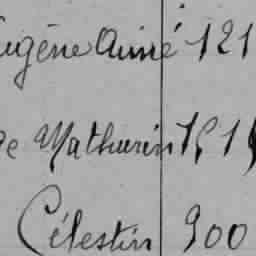 Eugène Aimé 121
Mathurin
Célestin 900